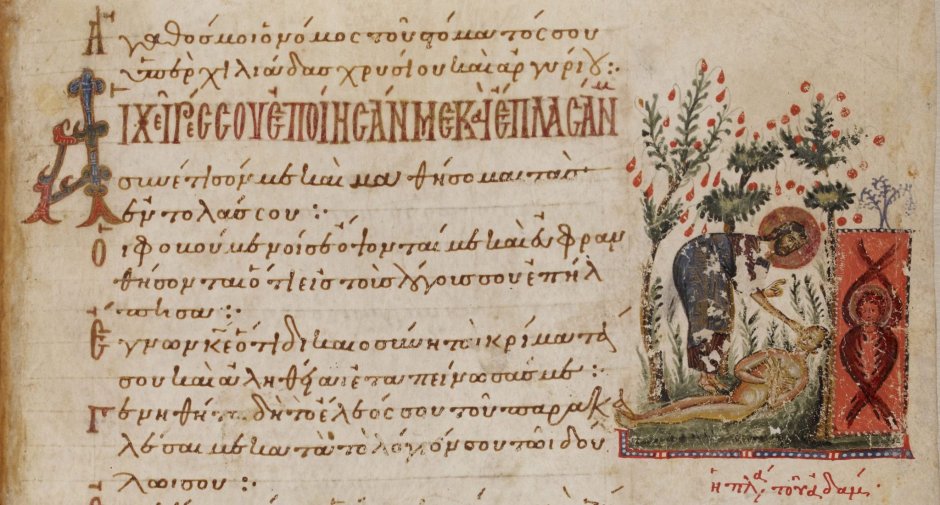 Ἀγαθός μοι ὁ νόμος τοῦ στόματός σου
ὑπὲρ χιλιάδας χρυσίου καὶ ἀργυρίου :
Αἱ χεῖρές σου ἐποίησάν με καὶ ἔπλασάν μ
συνέτισόν με καὶ μαθήσομαι τὰς
ἐντολάς σου :
Οἱ φοβούμενοί σε ὄψονταί με καὶ εὐφραν
θήσονται ὅτι εἰς τοὺς λόγους σου ἐπήλ
πισα :
Ἔγνων κε ὅτι δικαιοσύνη τὰ κρίματά
σου καὶ ἀληθείᾳ ἐταπείνωσάς με :
Γενηθήτω δὴ τὸ ἔλεός σου τοῦ παρακα
λέσαι με κατὰ τὸ λόγιόν σου τῶι δού
λωι σου :
ἡ πλά τοῦ ἀδάμ